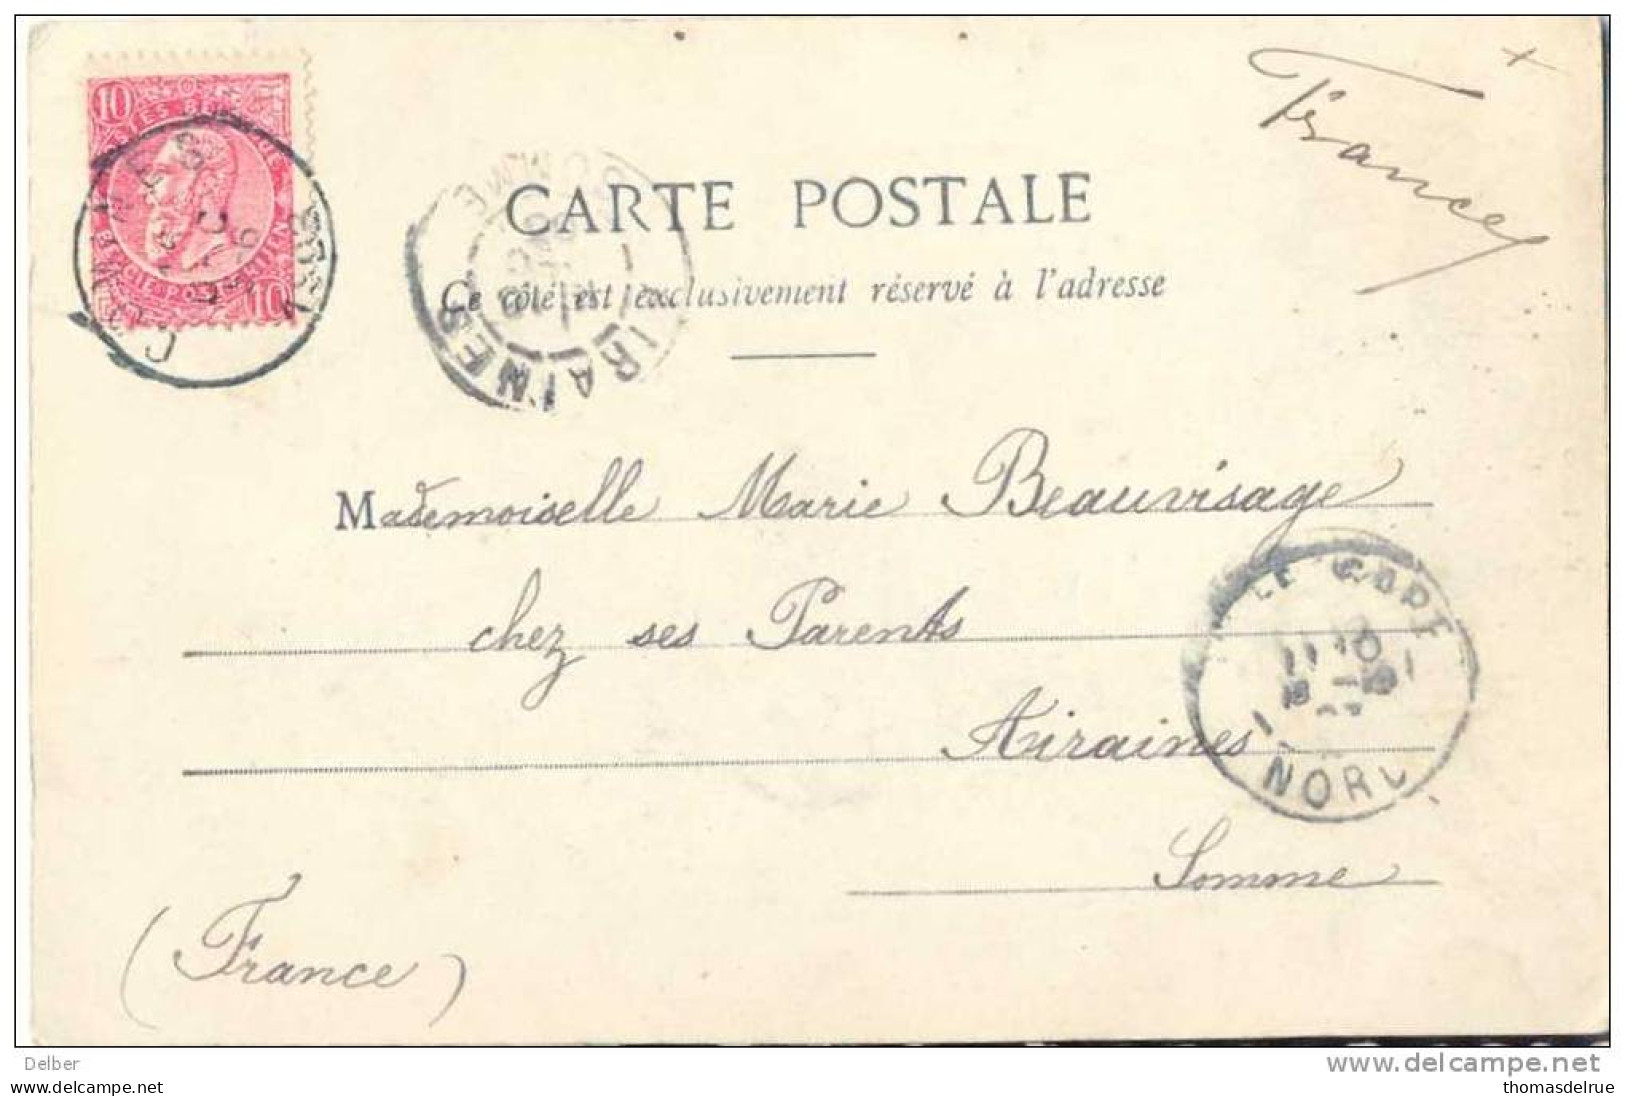 10
10
France
CARTE POSTALE
Ce côté est exclusivement réservé à l'adresse
AIRAINES
SOMME
Mademoiselle Marie Beauvisage
chez ses Parents
Airaines
Somme
(France)
NORD
Delber
delcampe.net
thomasdelrue